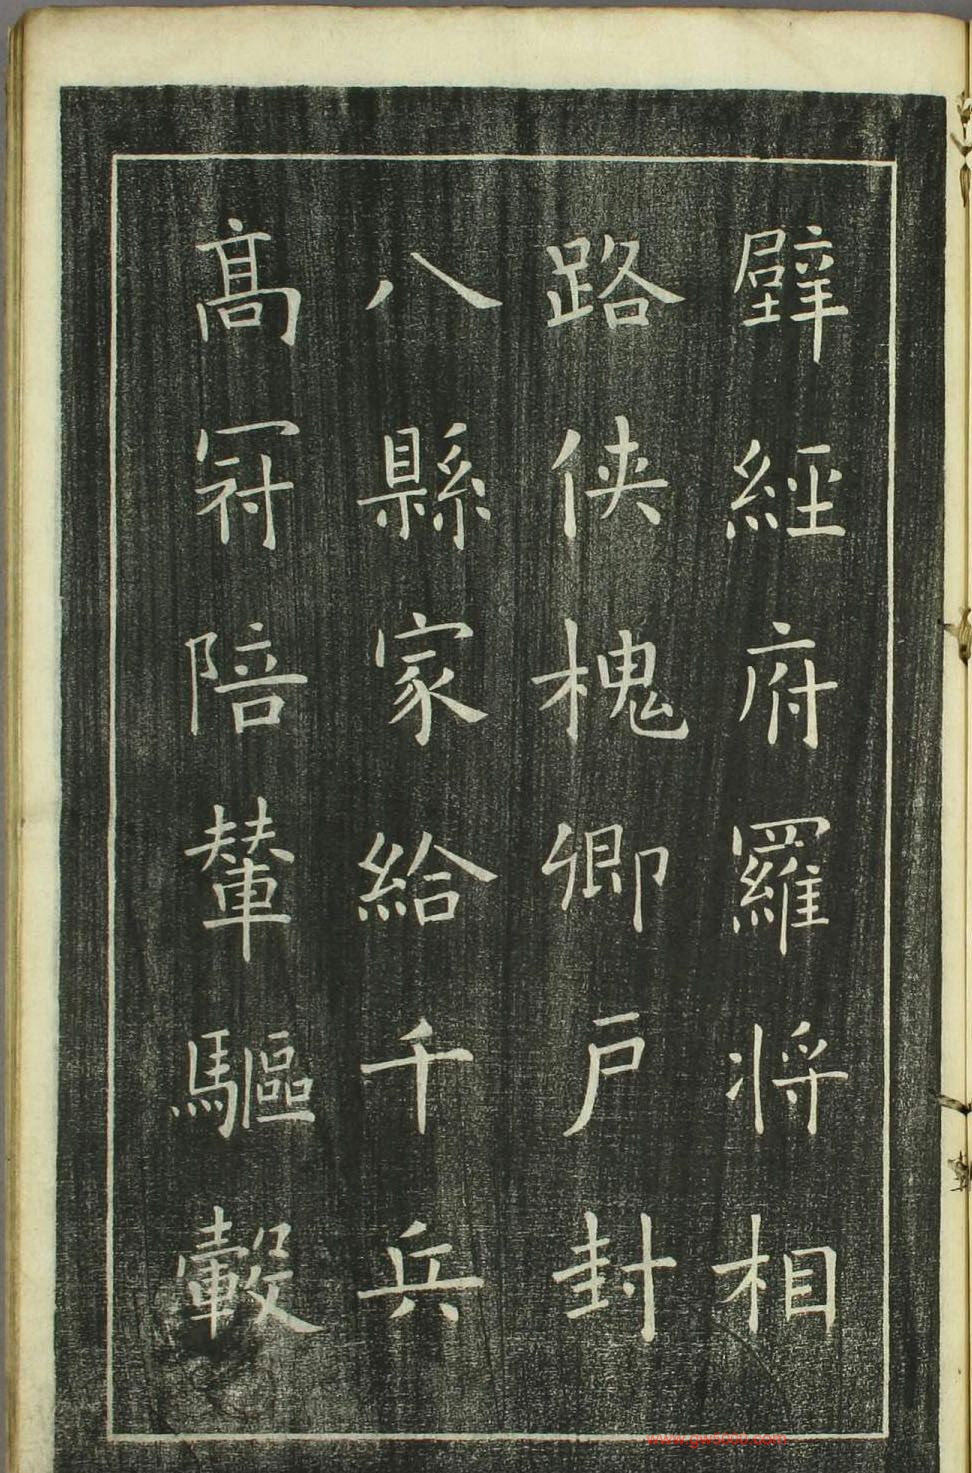 壁經府羅将相
路侠槐卿戶封
八縣家給千兵
髙冠陪輦驅轂
www.gw5000.com